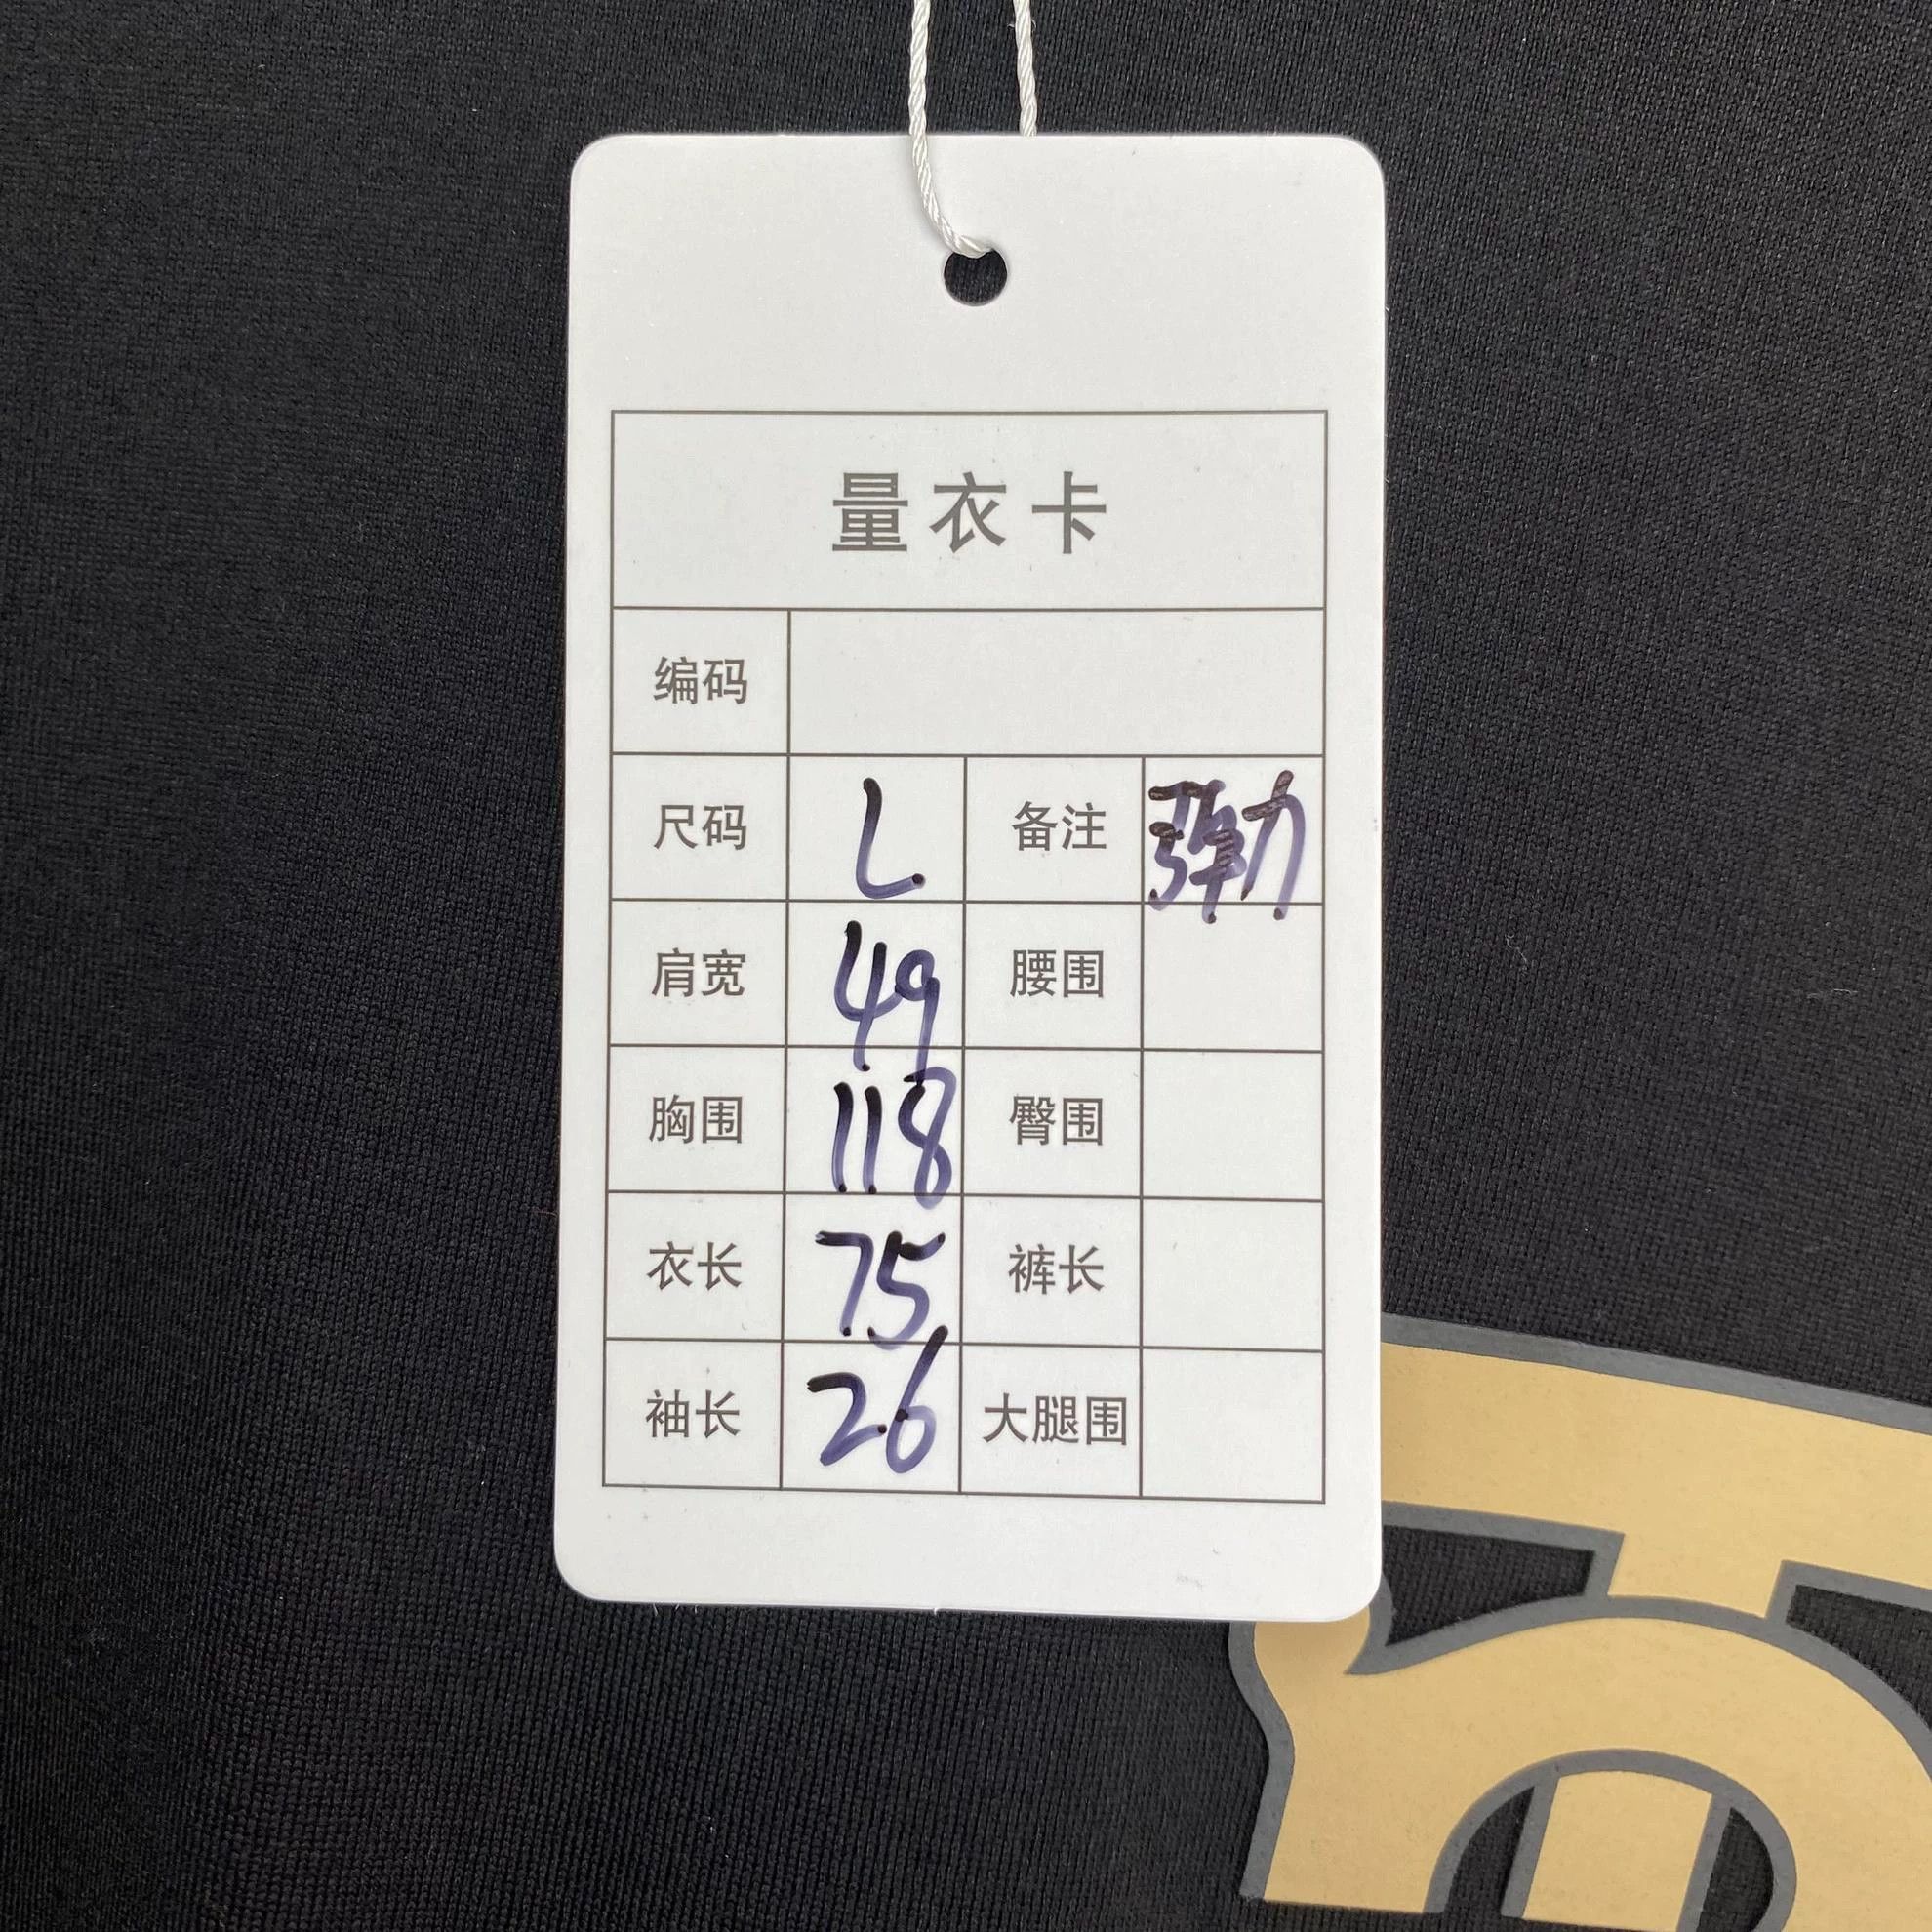 量衣卡
编码
尺码 L 备注 弹力
肩宽 49 腰围
胸围 118 臀围
衣长 75 裤长
袖长 26 大腿围